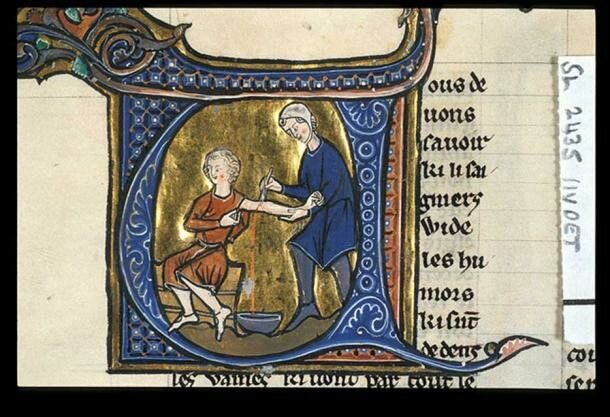 ous de
uons
sauoir
ki li sai
gniers
wide
les hu
mors
ki sūt
dedenz
les vaines ki uont par tout le
SL 2435 11V DET